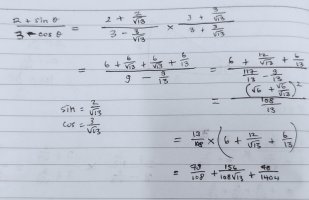 (2 + sin θ)/(3 - cos θ) = (2 + 2/√13)/(3 - 3/√13) × (3 + 3/√13)/(3 + 3/√13)
= (6 + 6/√13 + 6/√13 + 6/13)/(9 - 9/13) = (6 + 12/√13 + 6/13)/(117/13 - 9/13)
sin = 2/√13
cos = 3/√13
= (√6 + √6/√13)²/(108/13)
= 13/108 × (6 + 12/√13 + 6/13)
= 78/108 + 156/(108√13) + 78/1404